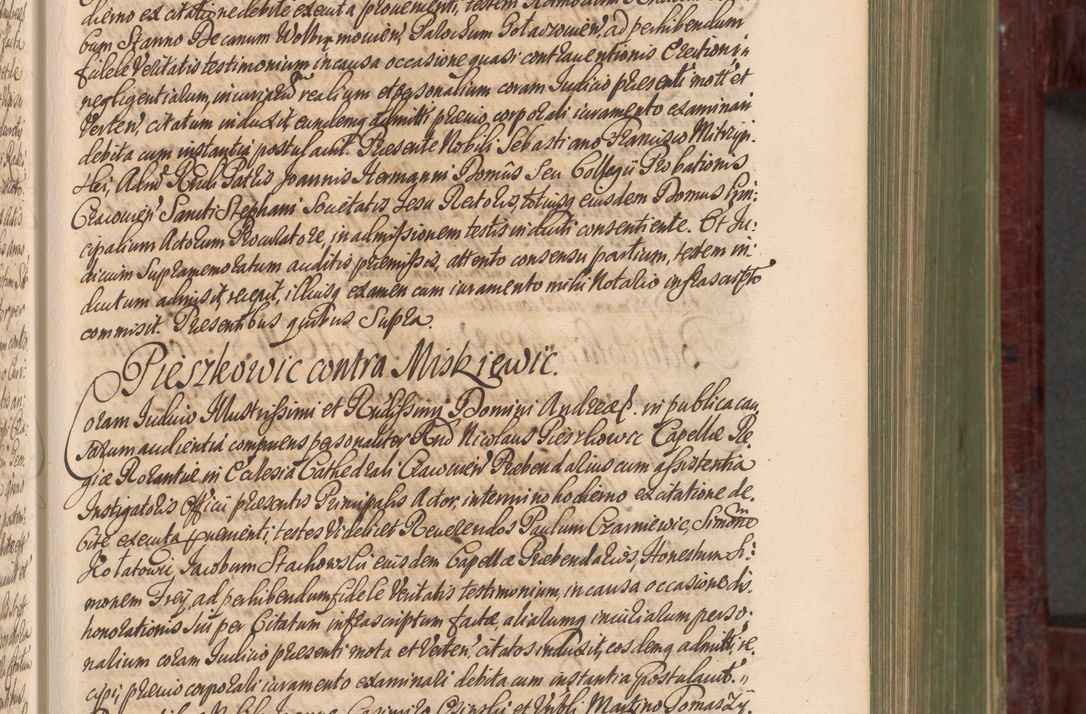 dierno ex citatione debite executa provenienti, testem
bum Stanno Decanum Wolbrmovien, Palochum Gołaczovien, ad perhibendum
fidele Veritatis testimonium in causa occasione quasi contraventionis Erectioni,
negligentiarum, iniuriarum realium et personalium coram Iudicio presenti mott' et
Verten', citatum induxit, eundemq admitti prævio corporali iuramento examinari
debita cum instantia postulavit. Præsente Nobili Sebastiano Francisco Mitripi
Hei, Admd Rndi Patris Joannis Hermanni Domûs Seu Collegij Probationis
Cracovien' Sancti Stephani Societatis Jesu Rectoris, totiusq eiusdem Domus Prin:
cipalium Actorum Procuratore, in admissionem testis induiti consentiente. Et Ju:
dicium Supramemoratum auditis præmissis, attento consensu partium, testem in:
ductum admisit, recepit, illiusq examen cum iuramento mihi Notario infrascripto
commisit. Præsentibus quibus Supra.
Pieszkowic contra Miskiewic.
Coram Iudicio Illustrissimi et Rndissimi Domini Andreæ &. in publica cau
sarum audientia comparens personaliter Rnd Nicolaus Pieszkowic Capellæ Re
giæ Rorantiæ in Ecclesia Cathedrali Cracovien' Prebendarius cum assistentia
Instigatoris Officii presentis Principalis Actor, in termino hodierno ex citatione de,
bite executa provenienti, testes videlicet Reverendos Paulum Czarniewic, Simone
Kołatowic, Jacobum Stachowski eiusdem Capellæ Præbendarios, Honestum Si:
monem Frey, ad perhibendum fidele Veritatis testimonium, in causa occasione dis
honorationis sui per Citatum infrascriptum factæ, aliarumq iniuriarum perso:
nalium coram Iudicio presenti mota et Verten', citatos induxit, eosdemq admitti, re,
cipi, prævio corporali iuramento examinari debita cum instantia postulavit.
Casimiro Osinski et Nobli Martino Tomaszy